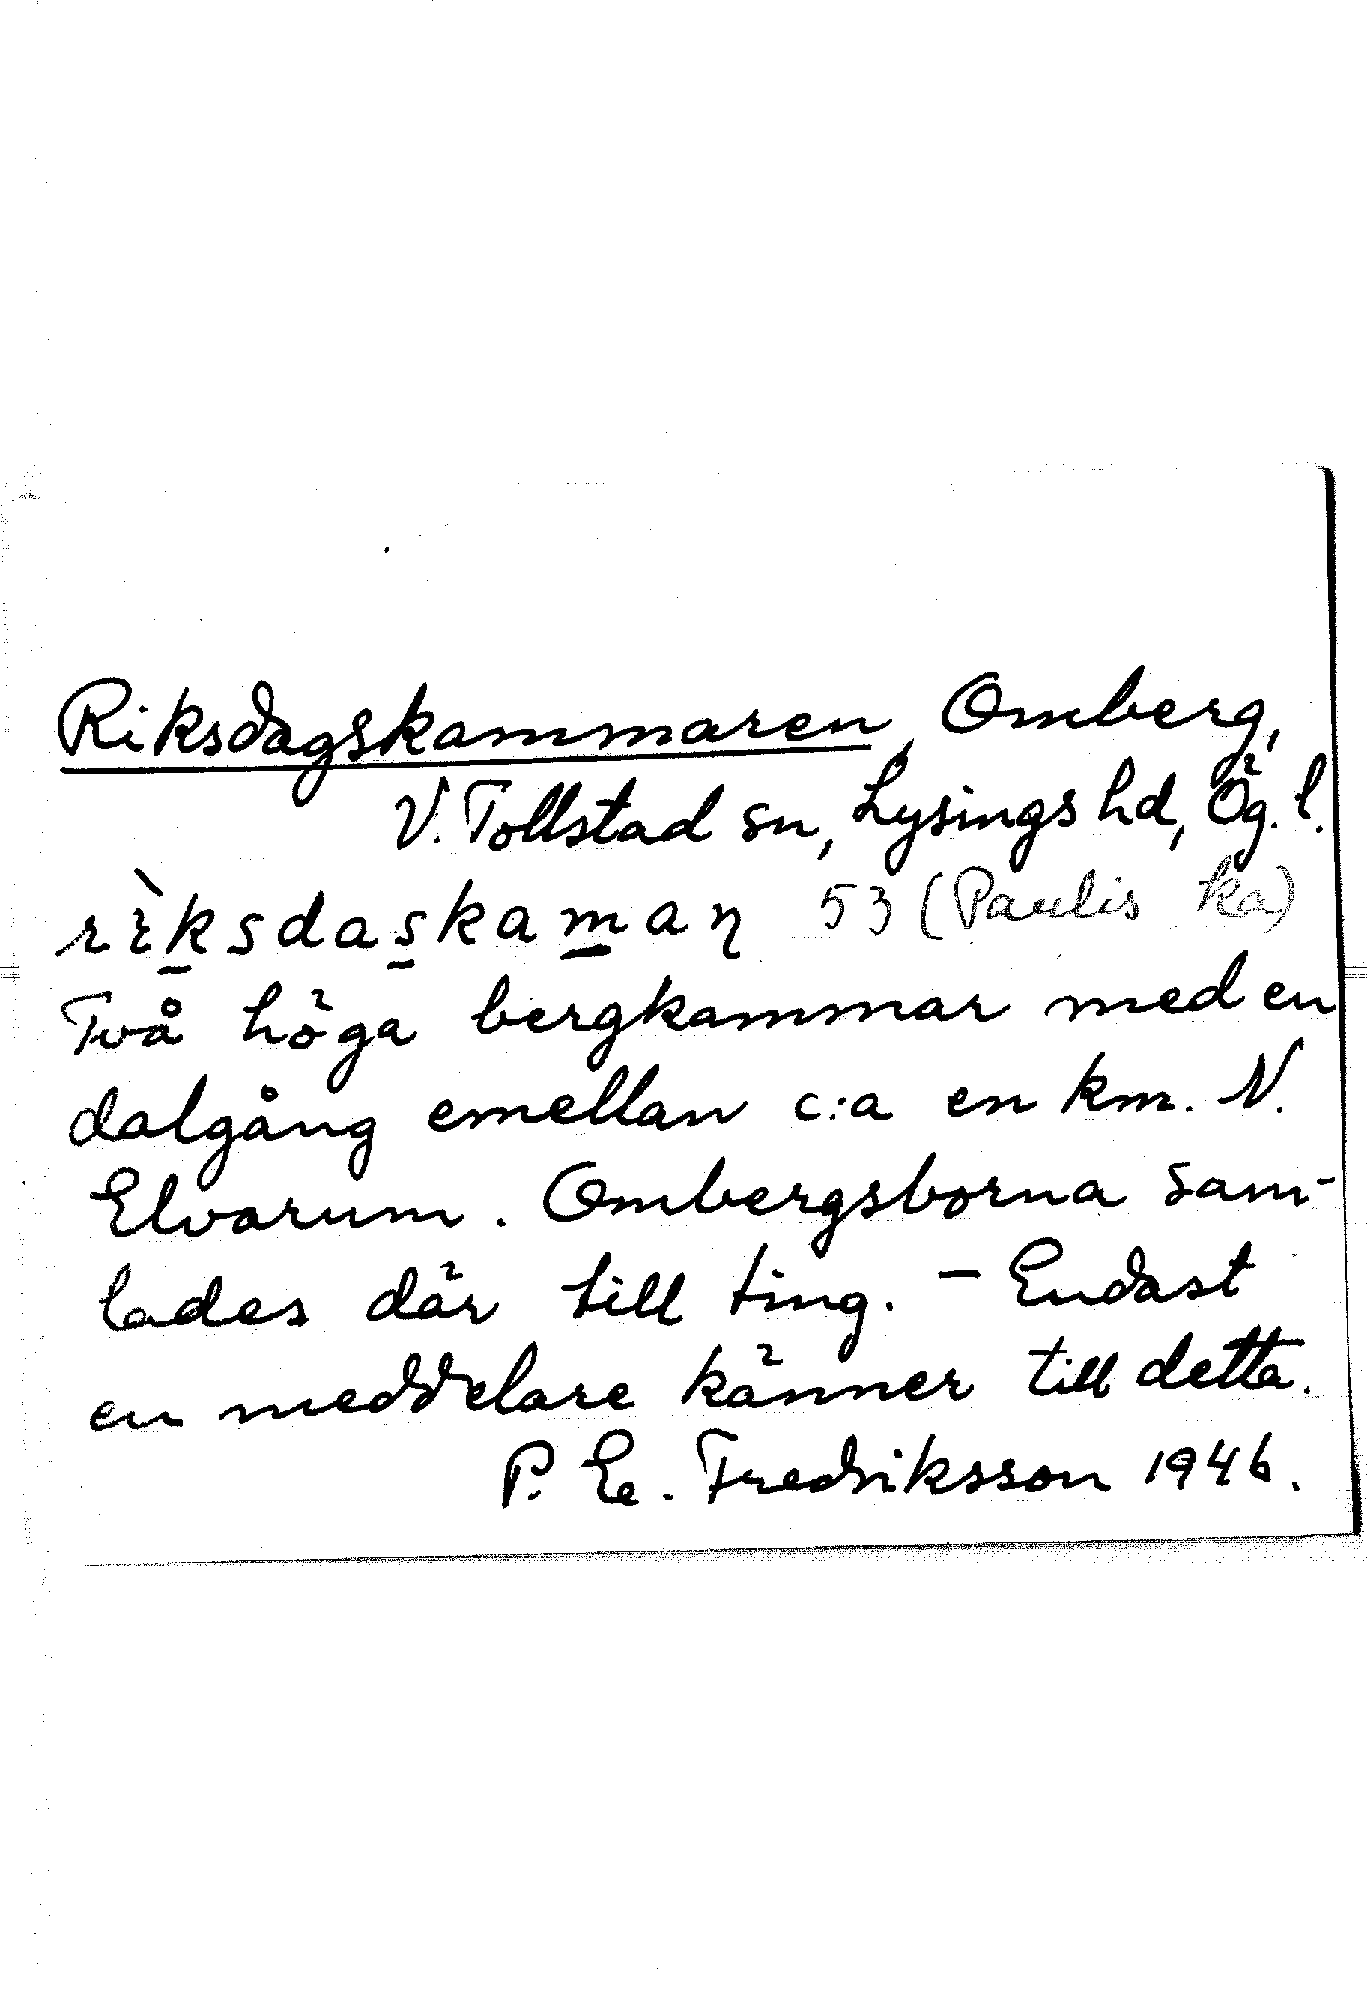 Riksdagskammaren, Omberg,
V. Tollstad sn, Lysings hd, Ög. l.
rìksdaskamaɳ 53 (Paulis ka)
Två höga bergkammar med en
dalgång emellan c:a en km. N.
Elvarum. Ombergsborna sam-
lades där till ting. – Endast
en meddelare känner till detta.
P. E. Fredriksson 1946.